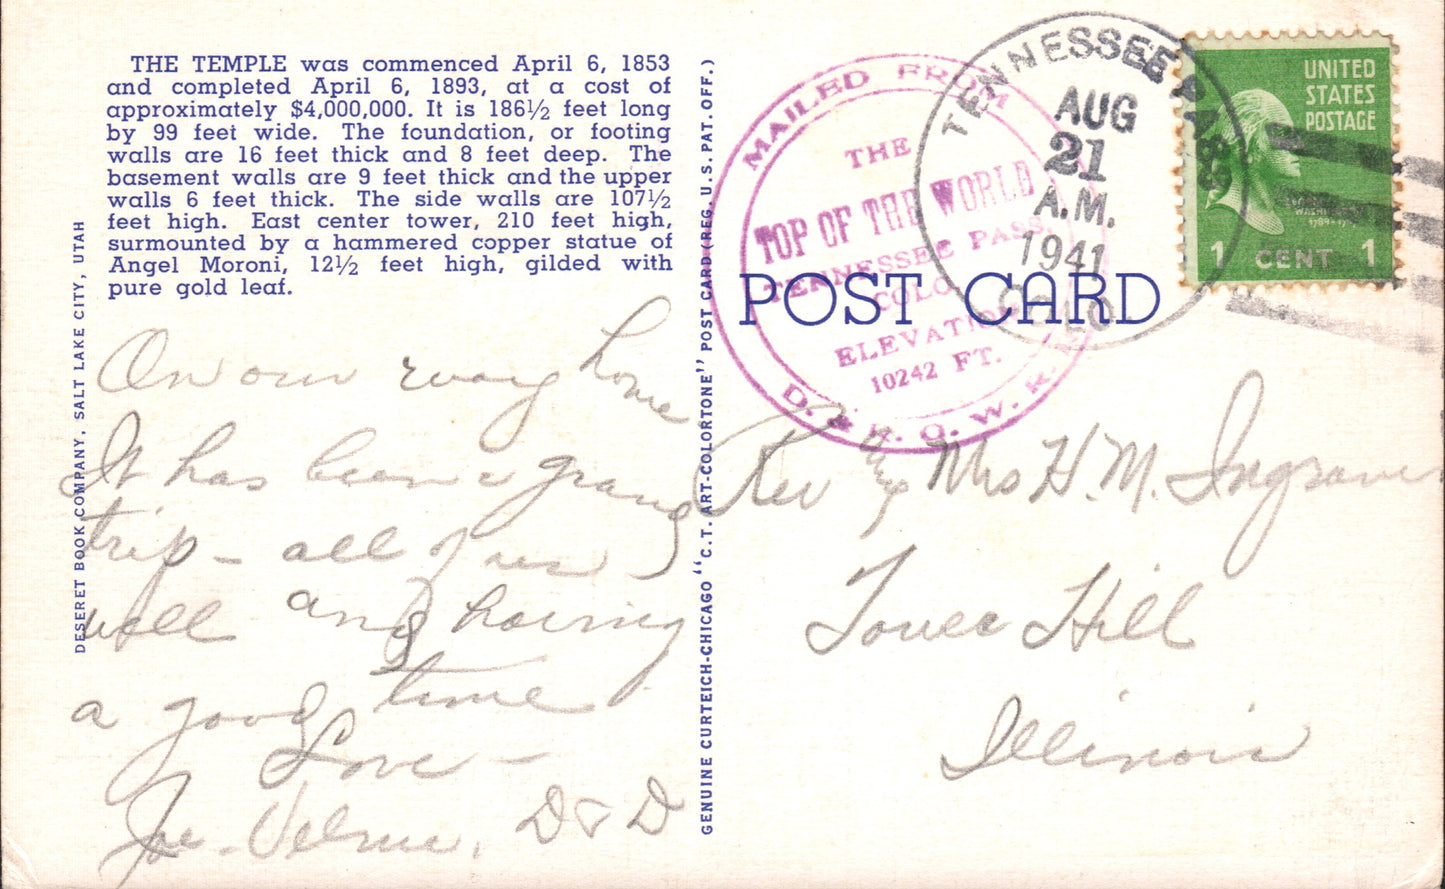 THE TEMPLE was commenced April 6, 1853
and completed April 6, 1893, at a cost of
approximately $4,000,000. It is 186½ feet long
by 99 feet wide. The foundation, or footing
walls are 16 feet thick and 8 feet deep. The
basement walls are 9 feet thick and the upper
walls 6 feet thick. The side walls are 107½
feet high. East center tower, 210 feet high,
surmounted by a hammered copper statue of
Angel Moroni, 12½ feet high, gilded with
pure gold leaf.
DESERET BOOK COMPANY, SALT LAKE CITY, UTAH
On our way home
It has been a grand
trip - all of us
well and having
a good time
Love -
Joe. Velma, D & D
GENUINE CURTEICH-CHICAGO "C.T. ART-COLORTONE" POST CARD (REG. U.S. PAT. OFF.)
MAILED FROM
THE
TOP OF THE WORLD
TENNESSEE PASS,
COLO
ELEVATION
10242 FT.
D. & R. G. W. R. R.
TENNESSEE PASS
AUG
21
A.M.
1941
COLO
UNITED
STATES
POSTAGE
WASHINGTON
1 CENT 1
POST CARD
Rev & Mrs H. M. Ingraver
Tower Hill
Illinois